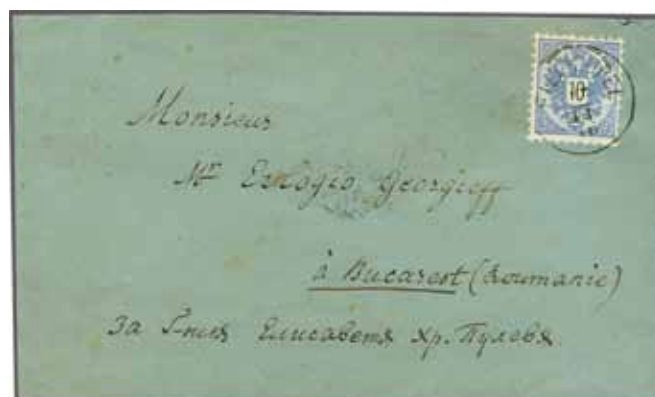 10
Monsieur
Mr Evlogio Georgieff
à Bucarest (Roumanie)
За Г-ния Елисаветѫ Хр. Пулевѫ.